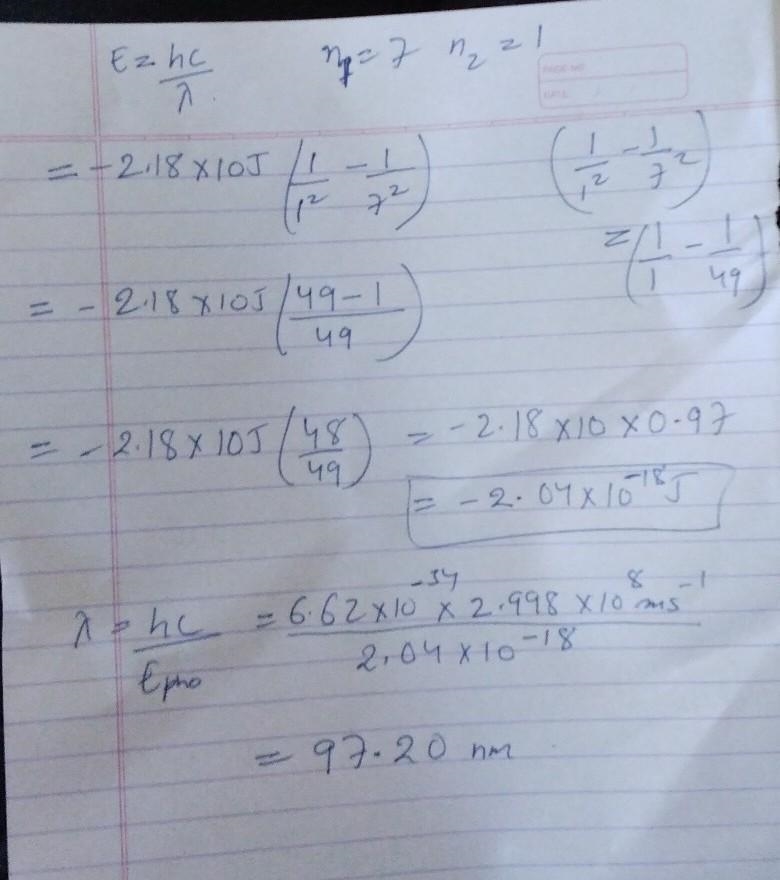 E = hc/λ n₁ = 7 n₂ = 1
PAGE NO
DATE
= -2.18 × 10 J (1/1² - 1/7²) (1/1² - 1/7²)
= (1/1 - 1/49)
= -2.18 × 10 J (49-1/49)
= -2.18 × 10 J (48/49) = -2.18 × 10 × 0.97
= -2.04 × 10⁻¹⁸ J
λ = hc/Epho = 6.62 × 10⁻³⁴ × 2.998 × 10⁸ ms⁻¹/2.04 × 10⁻¹⁸
= 97.20 nm